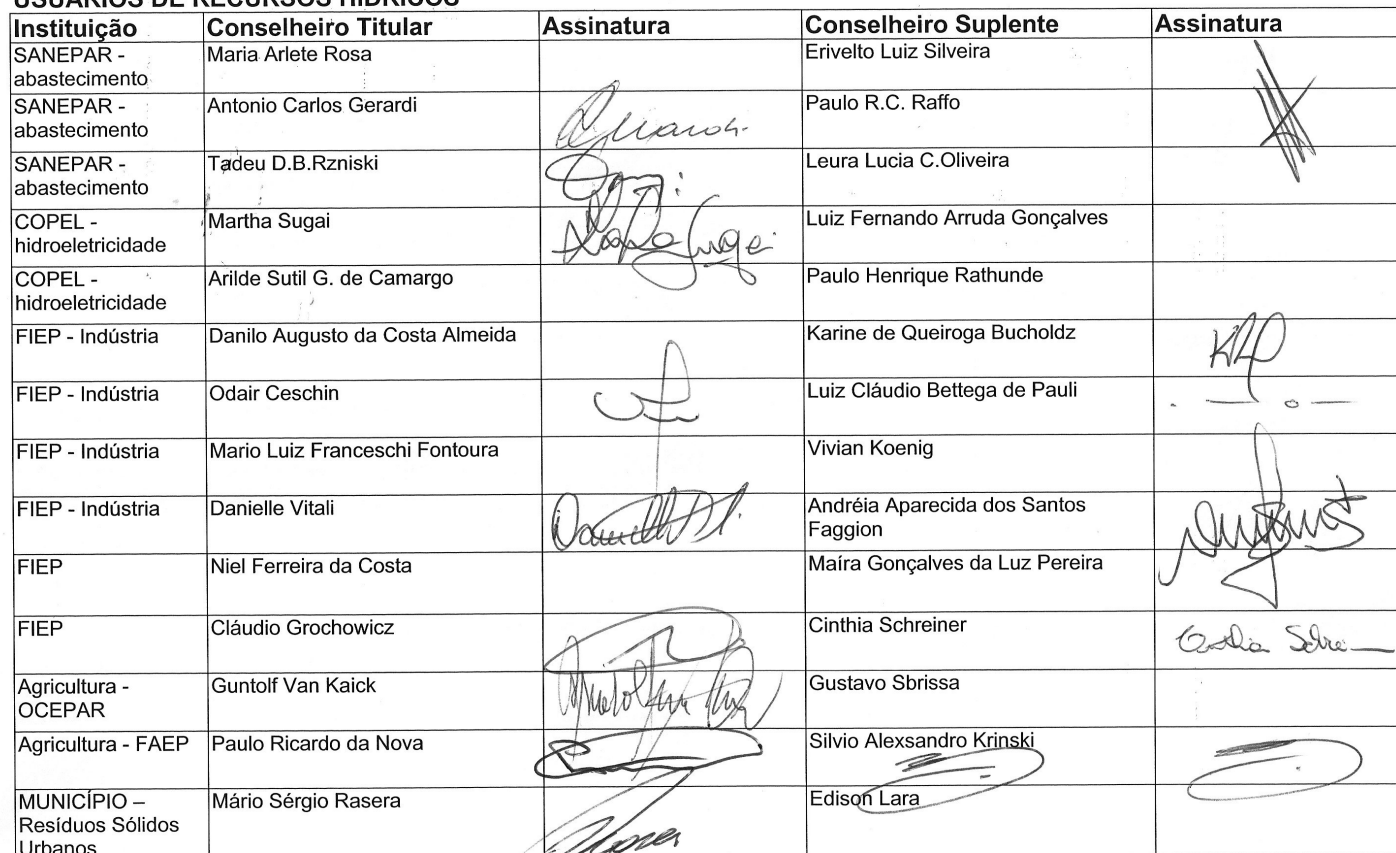 USUÁRIOS DE RECURSOS HÍDRICOS
Instituição Conselheiro Titular Assinatura Conselheiro Suplente Assinatura
SANEPAR - Maria Arlete Rosa Erivelto Luiz Silveira
abastecimento
SANEPAR - Antonio Carlos Gerardi Paulo R.C. Raffo
abastecimento
SANEPAR - Tadeu D.B.Rzniski Leura Lucia C.Oliveira
abastecimento
COPEL - Martha Sugai Luiz Fernando Arruda Gonçalves
hidroeletricidade
COPEL - Arilde Sutil G. de Camargo Paulo Henrique Rathunde
hidroeletricidade
FIEP - Indústria Danilo Augusto da Costa Almeida Karine de Queiroga Bucholdz
FIEP - Indústria Odair Ceschin Luiz Cláudio Bettega de Pauli
FIEP - Indústria Mario Luiz Franceschi Fontoura Vivian Koenig
FIEP - Indústria Danielle Vitali Andréia Aparecida dos Santos
Faggion
FIEP Niel Ferreira da Costa Maíra Gonçalves da Luz Pereira
FIEP Cláudio Grochowicz Cinthia Schreiner
Agricultura - Guntolf Van Kaick Gustavo Sbrissa
OCEPAR
Agricultura - FAEP Paulo Ricardo da Nova Silvio Alexsandro Krinski
MUNICÍPIO – Mário Sérgio Rasera Edison Lara
Resíduos Sólidos
Urbanos